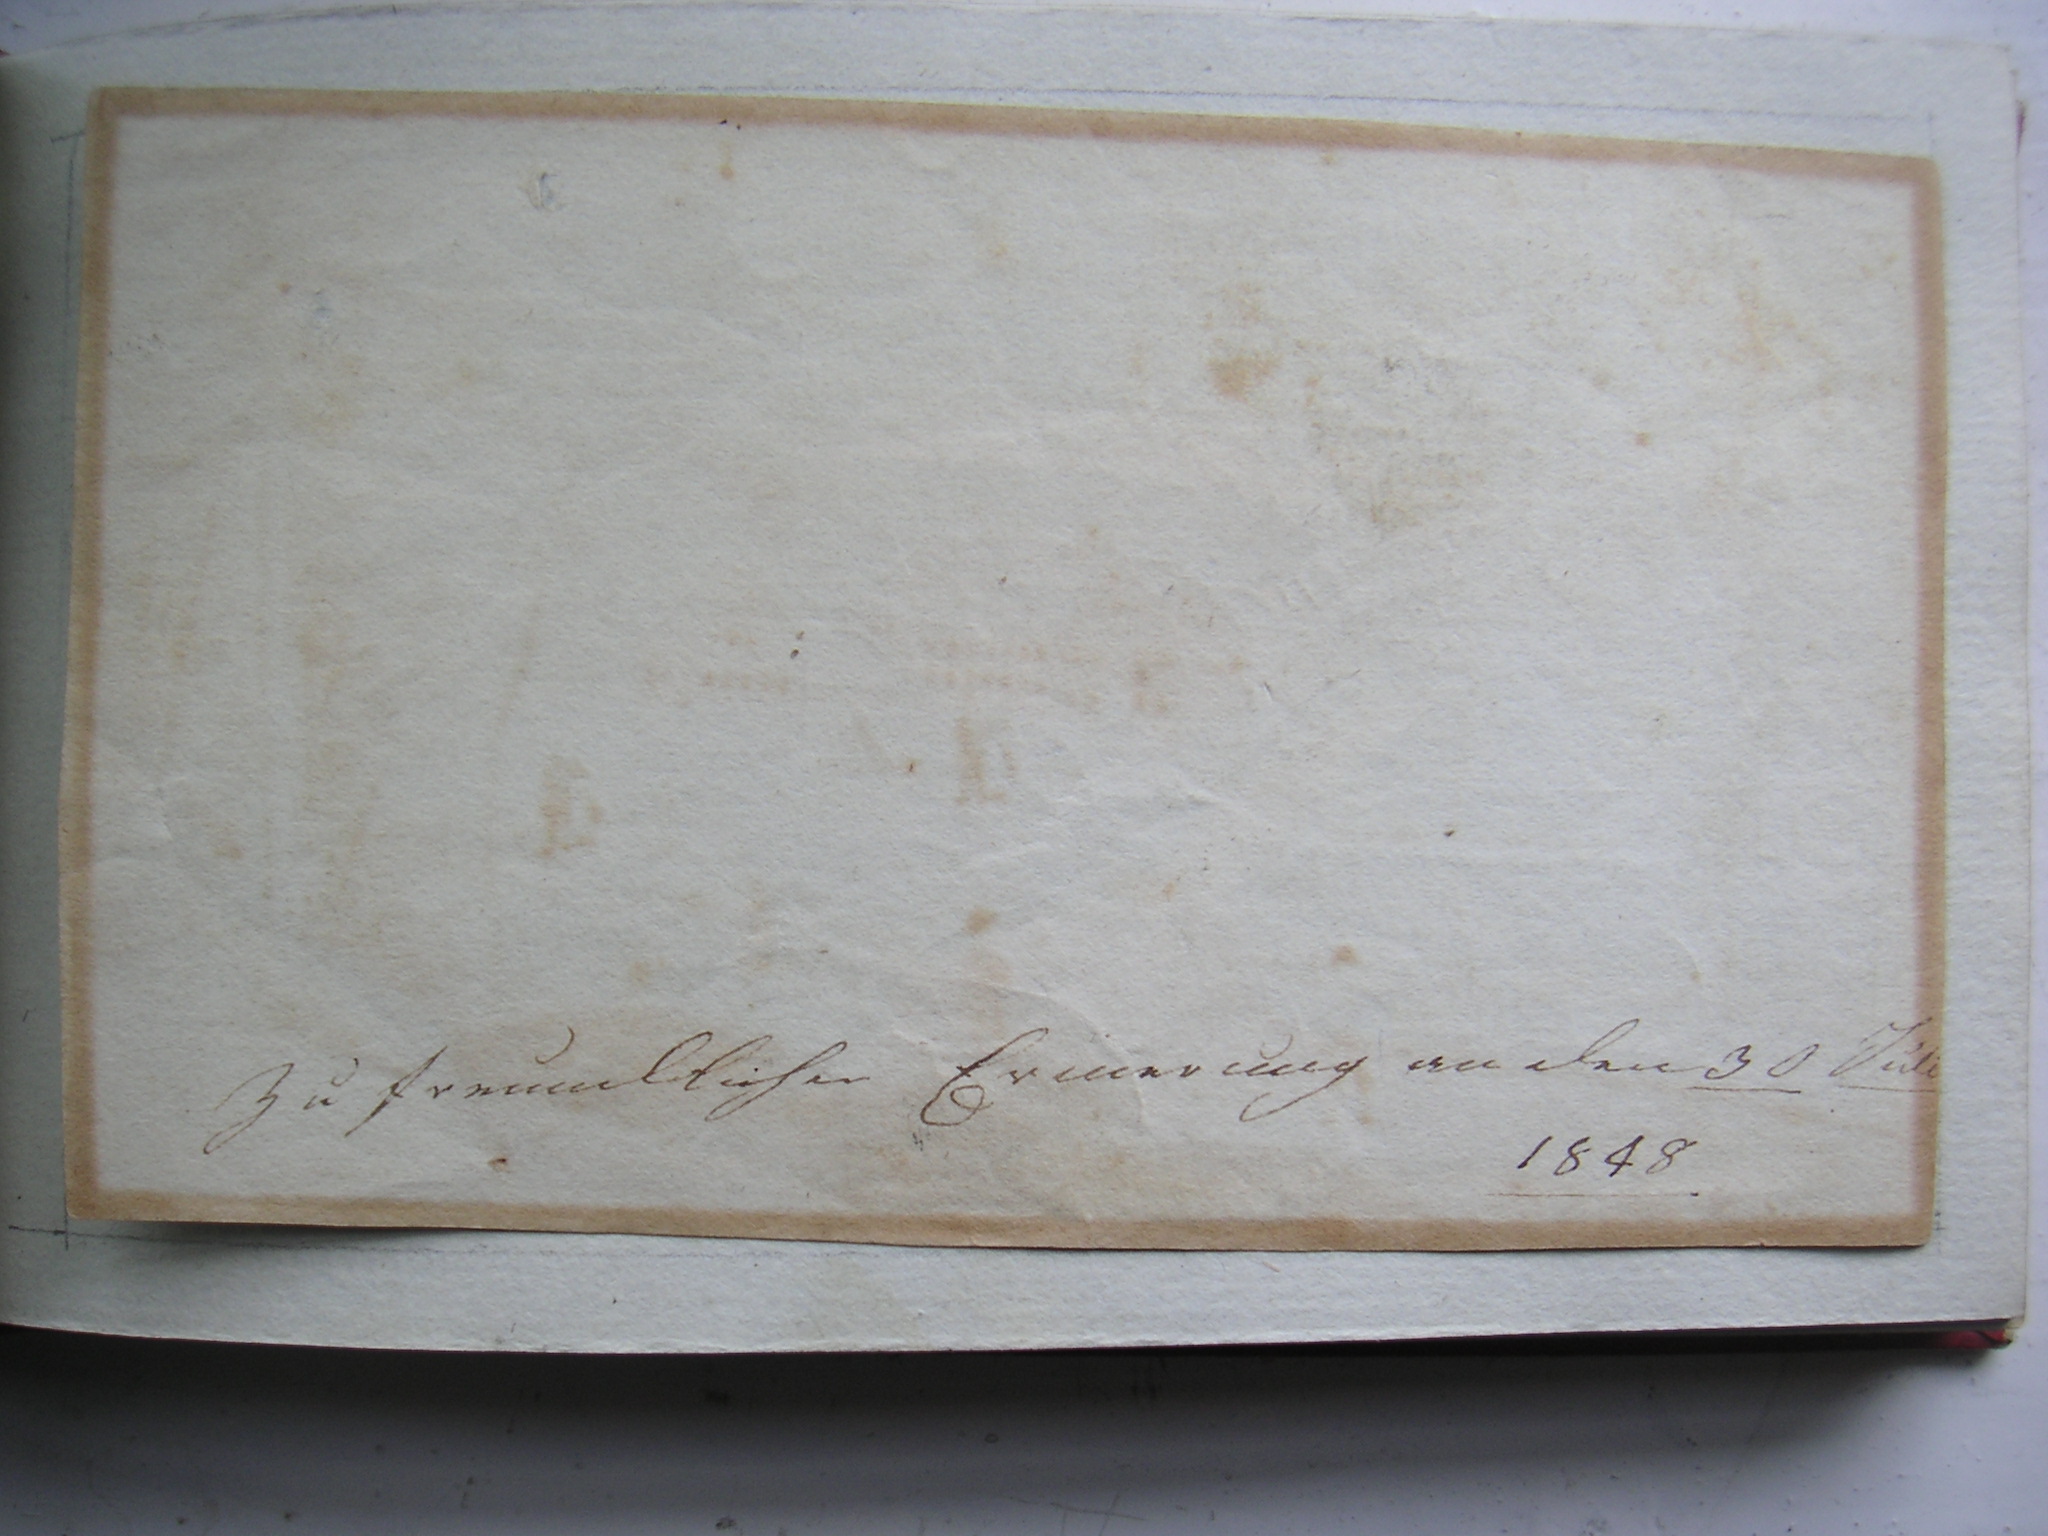 Zu freundlicher Erinerung an den 30 Juli
1848